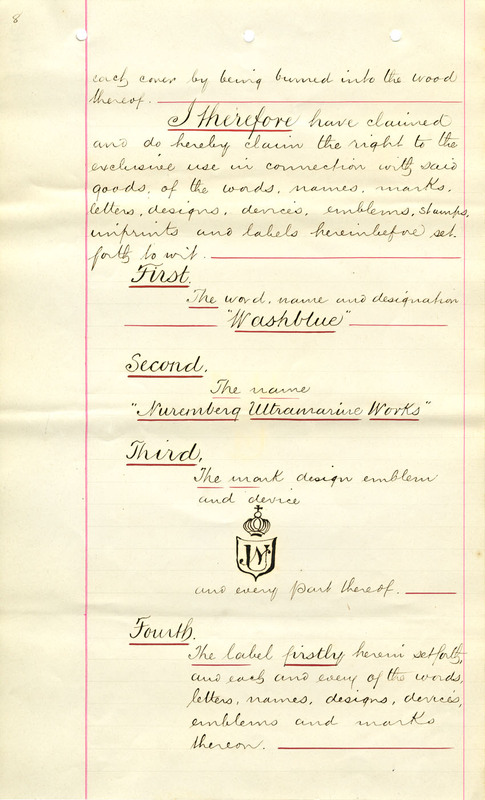 8
each cover by being burned into the wood
thereof.
I therefore have claimed
and do hereby claim the right to the
exclusive use in connection with said
goods, of the words, names, marks,
letters, designs, devices, emblems, stamps,
imprints and labels hereinbefore set
forth to wit.
First.
The word, name and designation
"Washblue"
Second.
The name
"Nuremberg Ultramarine Works"
Third.
The mark design emblem
and device
JW
and every part thereof.
Fourth.
The label firstly herein set forth,
and each and every of the words,
letters, names, designs, devices,
emblems and marks
thereon.